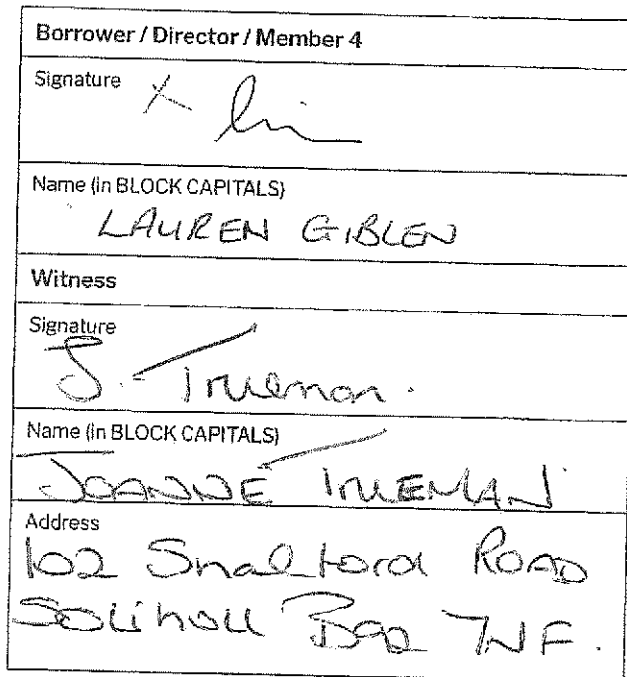 Borrower / Director / Member 4
Signature
X
Name (in BLOCK CAPITALS)
LAUREN GIBLEN
Witness
Signature
J. Trueman.
Name (in BLOCK CAPITALS)
JOANNE TRUEMAN
Address
102 Road
Solihull B92 7NF.